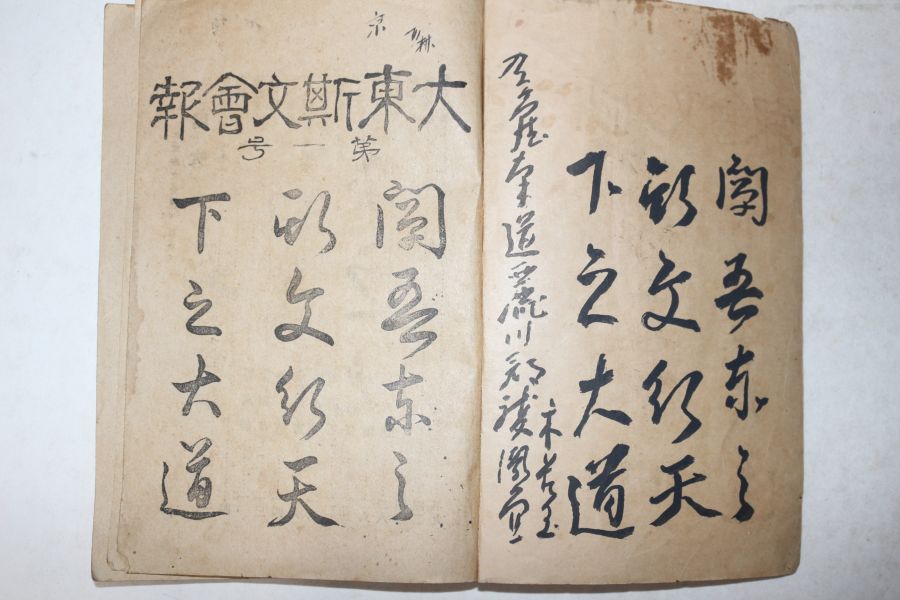 闡吾東之
斯文行天
下之大道
全羅南道麗川郡雙鳳面
大東斯文會報
第一号
闡吾東之
斯文行天
下之大道